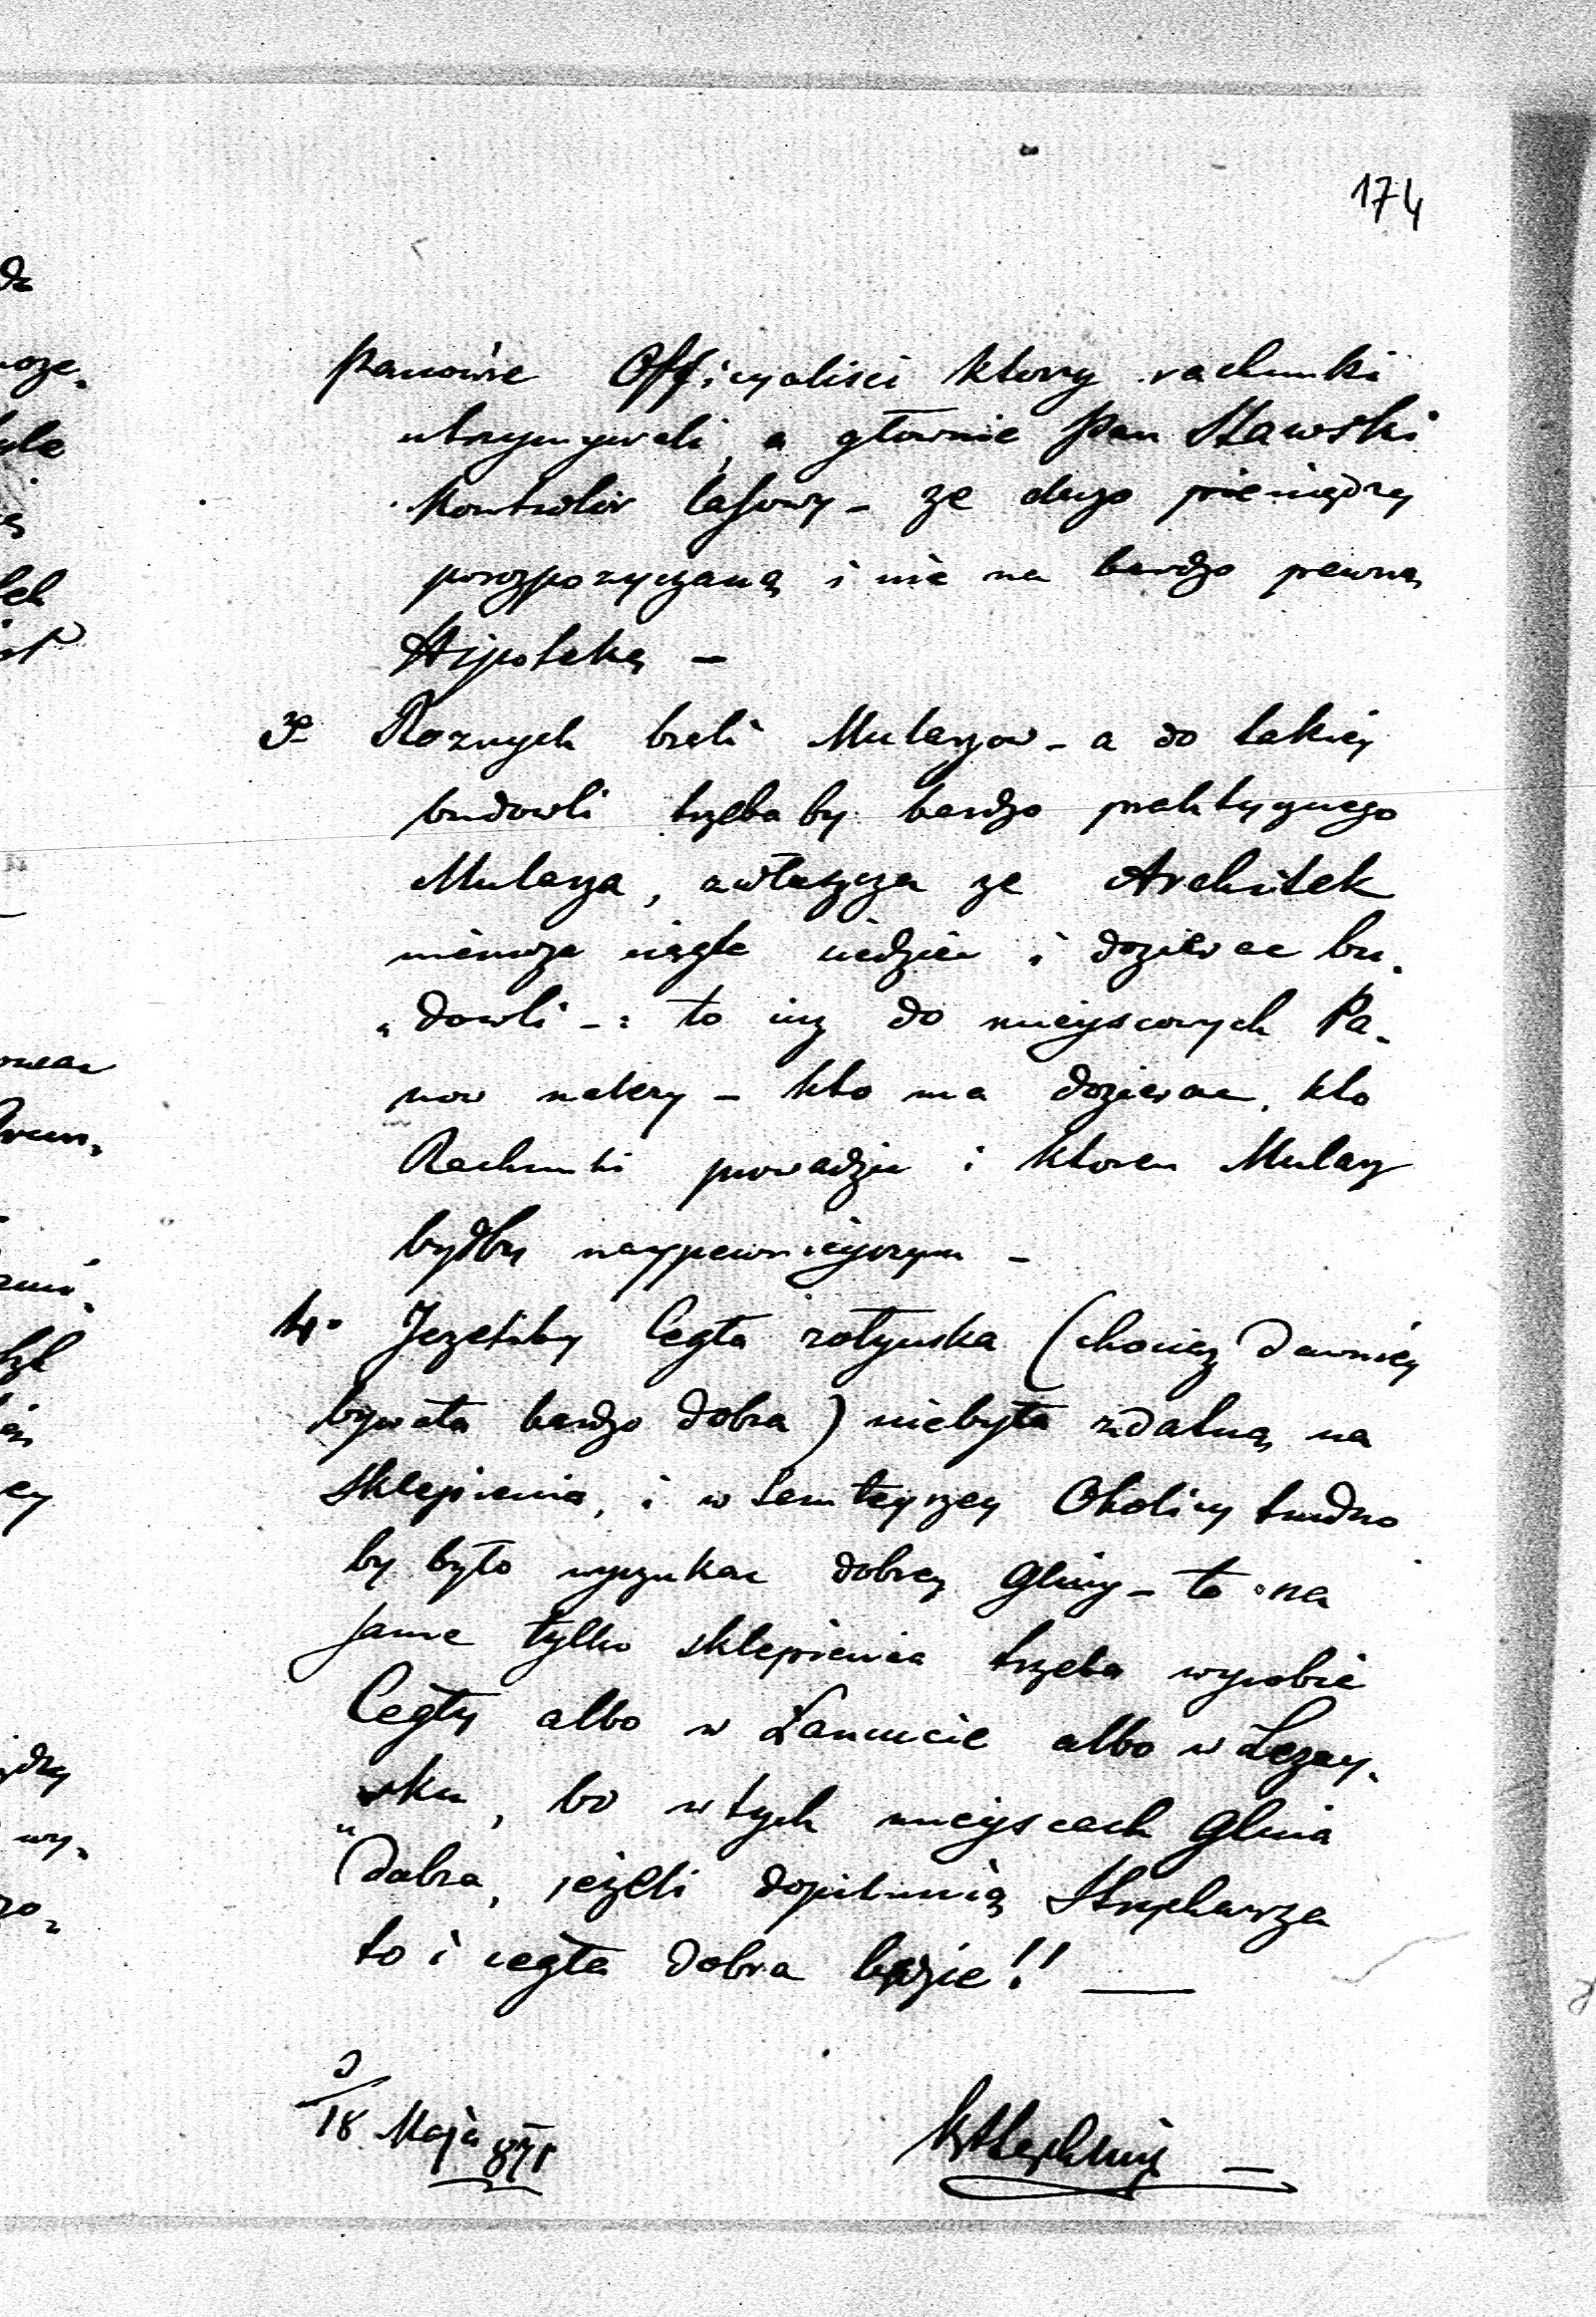 174
Panowie Officyalisci ktorzy rachunki
utrzymywali, a głownie Pan Stawski
Kontrolor lassowy – ze dugo pieniędzy
porozpozyczaną i nie na bardzo pewną
Hipoteką –
3º Roznych brali Mularzow – a do takiey
budowli trzeba by bardzo praktycznego
Mularza, zwłaszcza ze Architek
niemoze ciągle siedziec i dozierac bu-
„dowli –: to iuz do mieyscowych Pa-
now nalezy – kto ma dozierac, kto
Rachunki prowadzic i ktoren Mularz
byłby naypewnieyszym –
4º Jezeliby Cegła rołynska (chociaz dawniey
bywała bardzo dobra) niebyła zdatną na
Sklepienia, i w tamteyszey Okolicy trudno
by było wyszukac dobrey Gliny – to na
same tylko sklepienia trzeba wyrobic
Cegły albo w Łancucie albo w Lezay-
„sku, bo w tych mieyscach Glina
dobra, jezeli dopilnuią Strycharza
to i cegła dobra będzie!! —
18 Maja 871